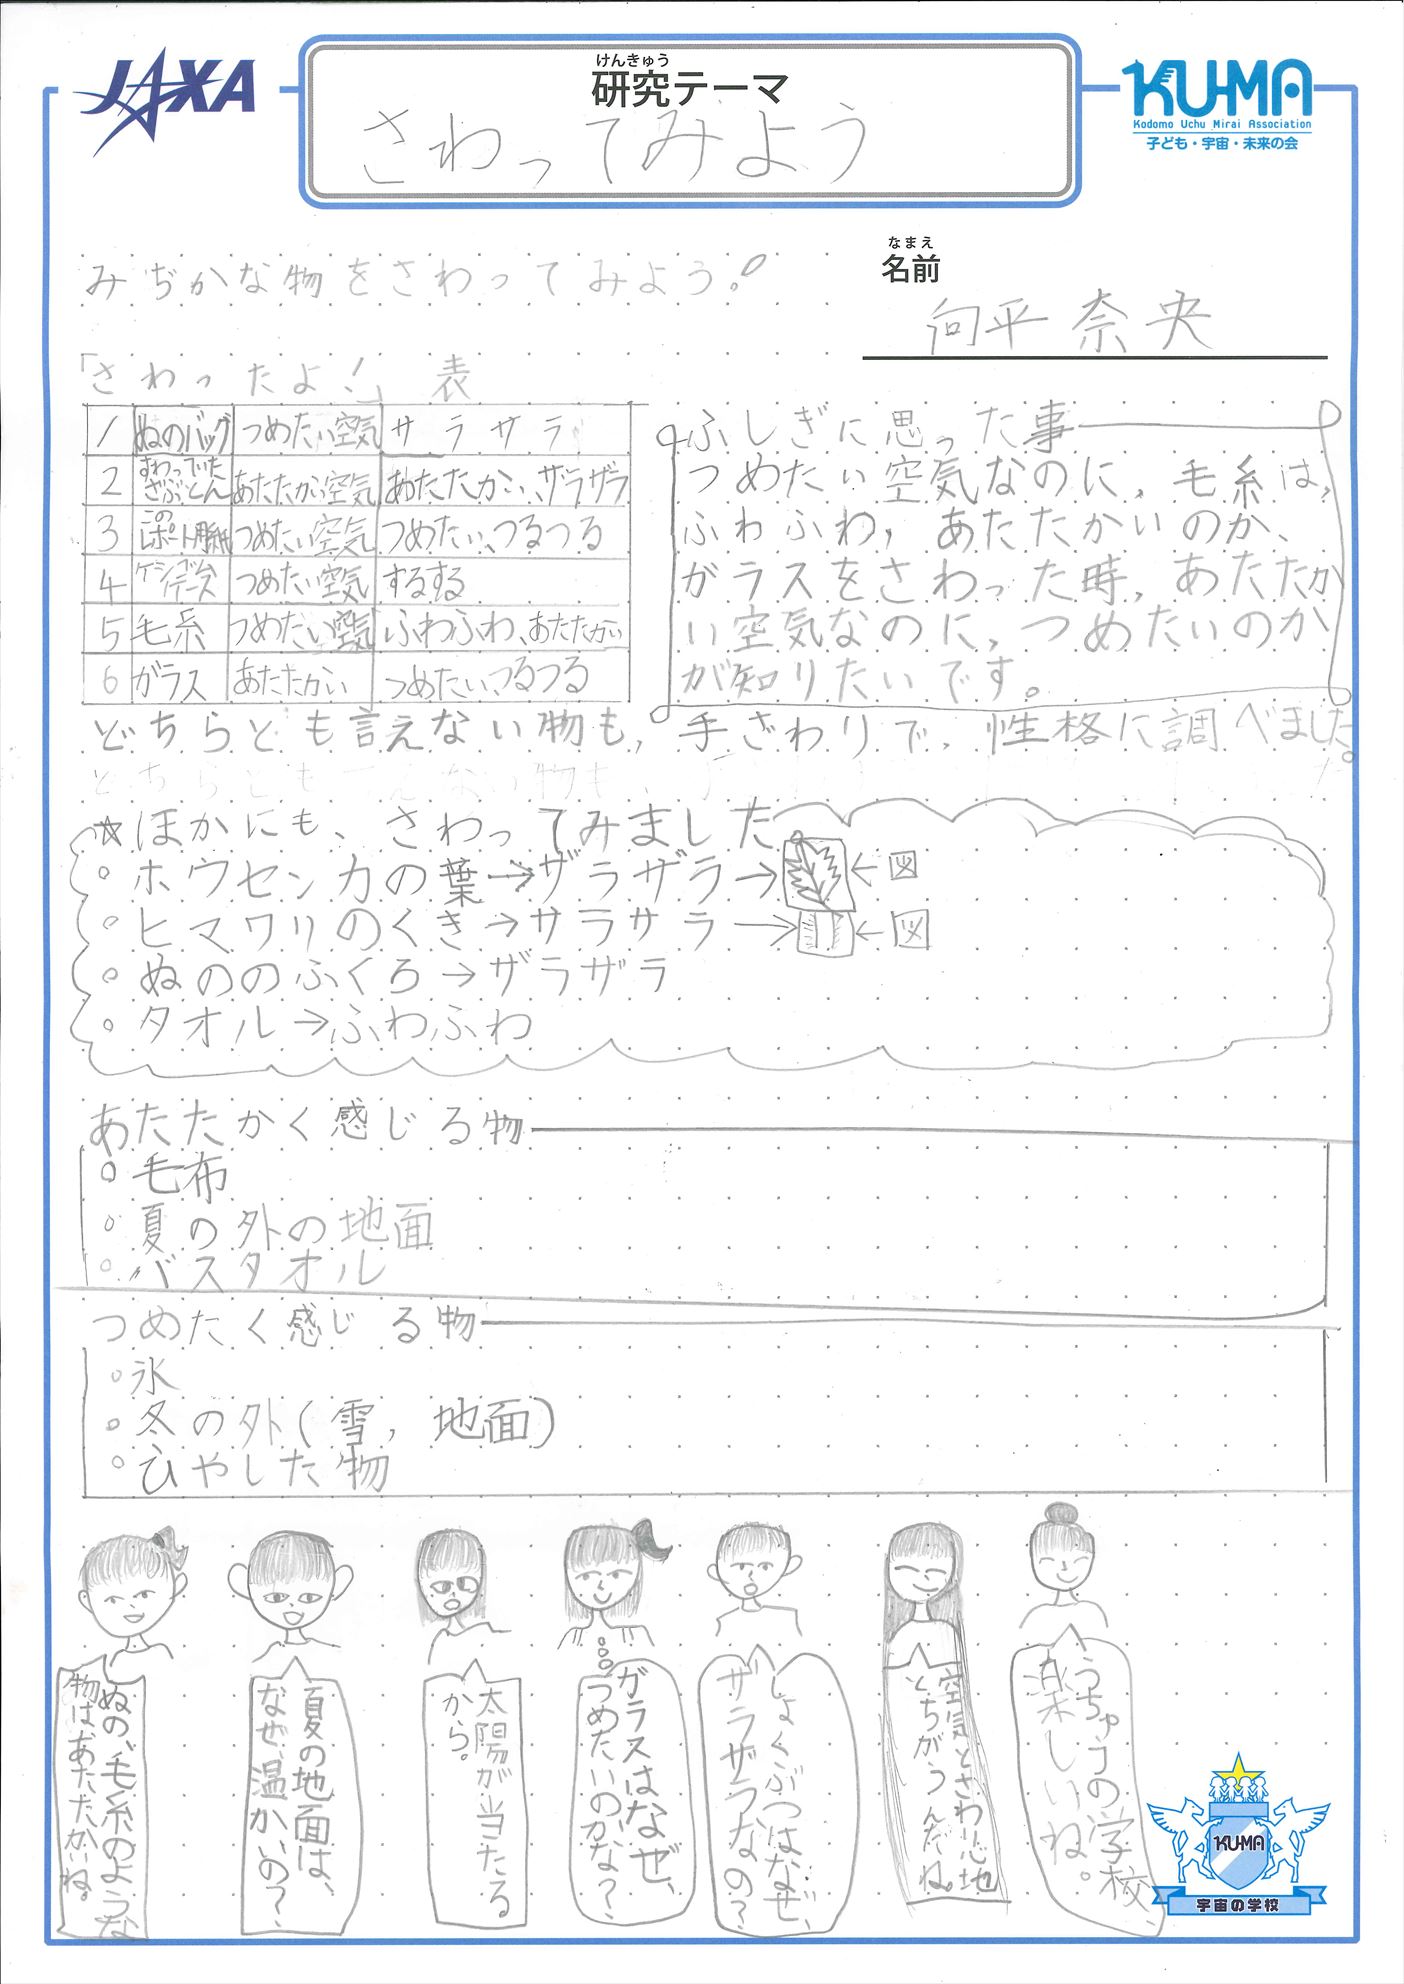 JAXA
けんきゅう
研究テーマ
さわってみよう
KU-MA
Kodomo Uchu Mirai Association
子ども・宇宙・未来の会
なまえ
名前
向平奈央
みぢかな物をさわってみよう!
「さわったよ!」表
1 ぬのバッグ つめたい空気 サラサラ
2 すわっていたざぶとん あたたかい空気 あたたかい、ザラザラ
3 このレポート用紙 つめたい空気 つめたい、つるつる
4 ケシゴムケース つめたい空気 するする
5 毛糸 つめたい空気 ふわふわ、あたたかい
6 ガラス あたたかい つめたい、つるつる
ふしぎに思った事
つめたい空気なのに、毛糸は、
ふわふわ、あたたかいのか、
ガラスをさわった時、あたたか
い空気なのに、つめたいのか
が知りたいです。
どちらとも言えない物も、手ざわりで、性格に調べました。
☆ほかにも、さわってみました
○ホウセンカの葉→ザラザラ→←図
○ヒマワリのくき→サラサラ→←図
○ぬののふくろ→ザラザラ
○タオル→ふわふわ
あたたかく感じる物
○毛布
○夏の外の地面
○バスタオル
つめたく感じる物
○氷
○冬の外(雪、地面)
○ひやした物
ぬの、毛糸のような
物はあたたかいね。
夏の地面は、
なぜ、温かいの?
太陽が当たる
から。
ガラスはなぜ、
つめたいのかな?
しょくぶつはなぜ、
ザラザラなの?
空気とさわり心地
とちがうんだね。
うちゅうの学校、
楽しいね。
KU-MA
宇宙の学校